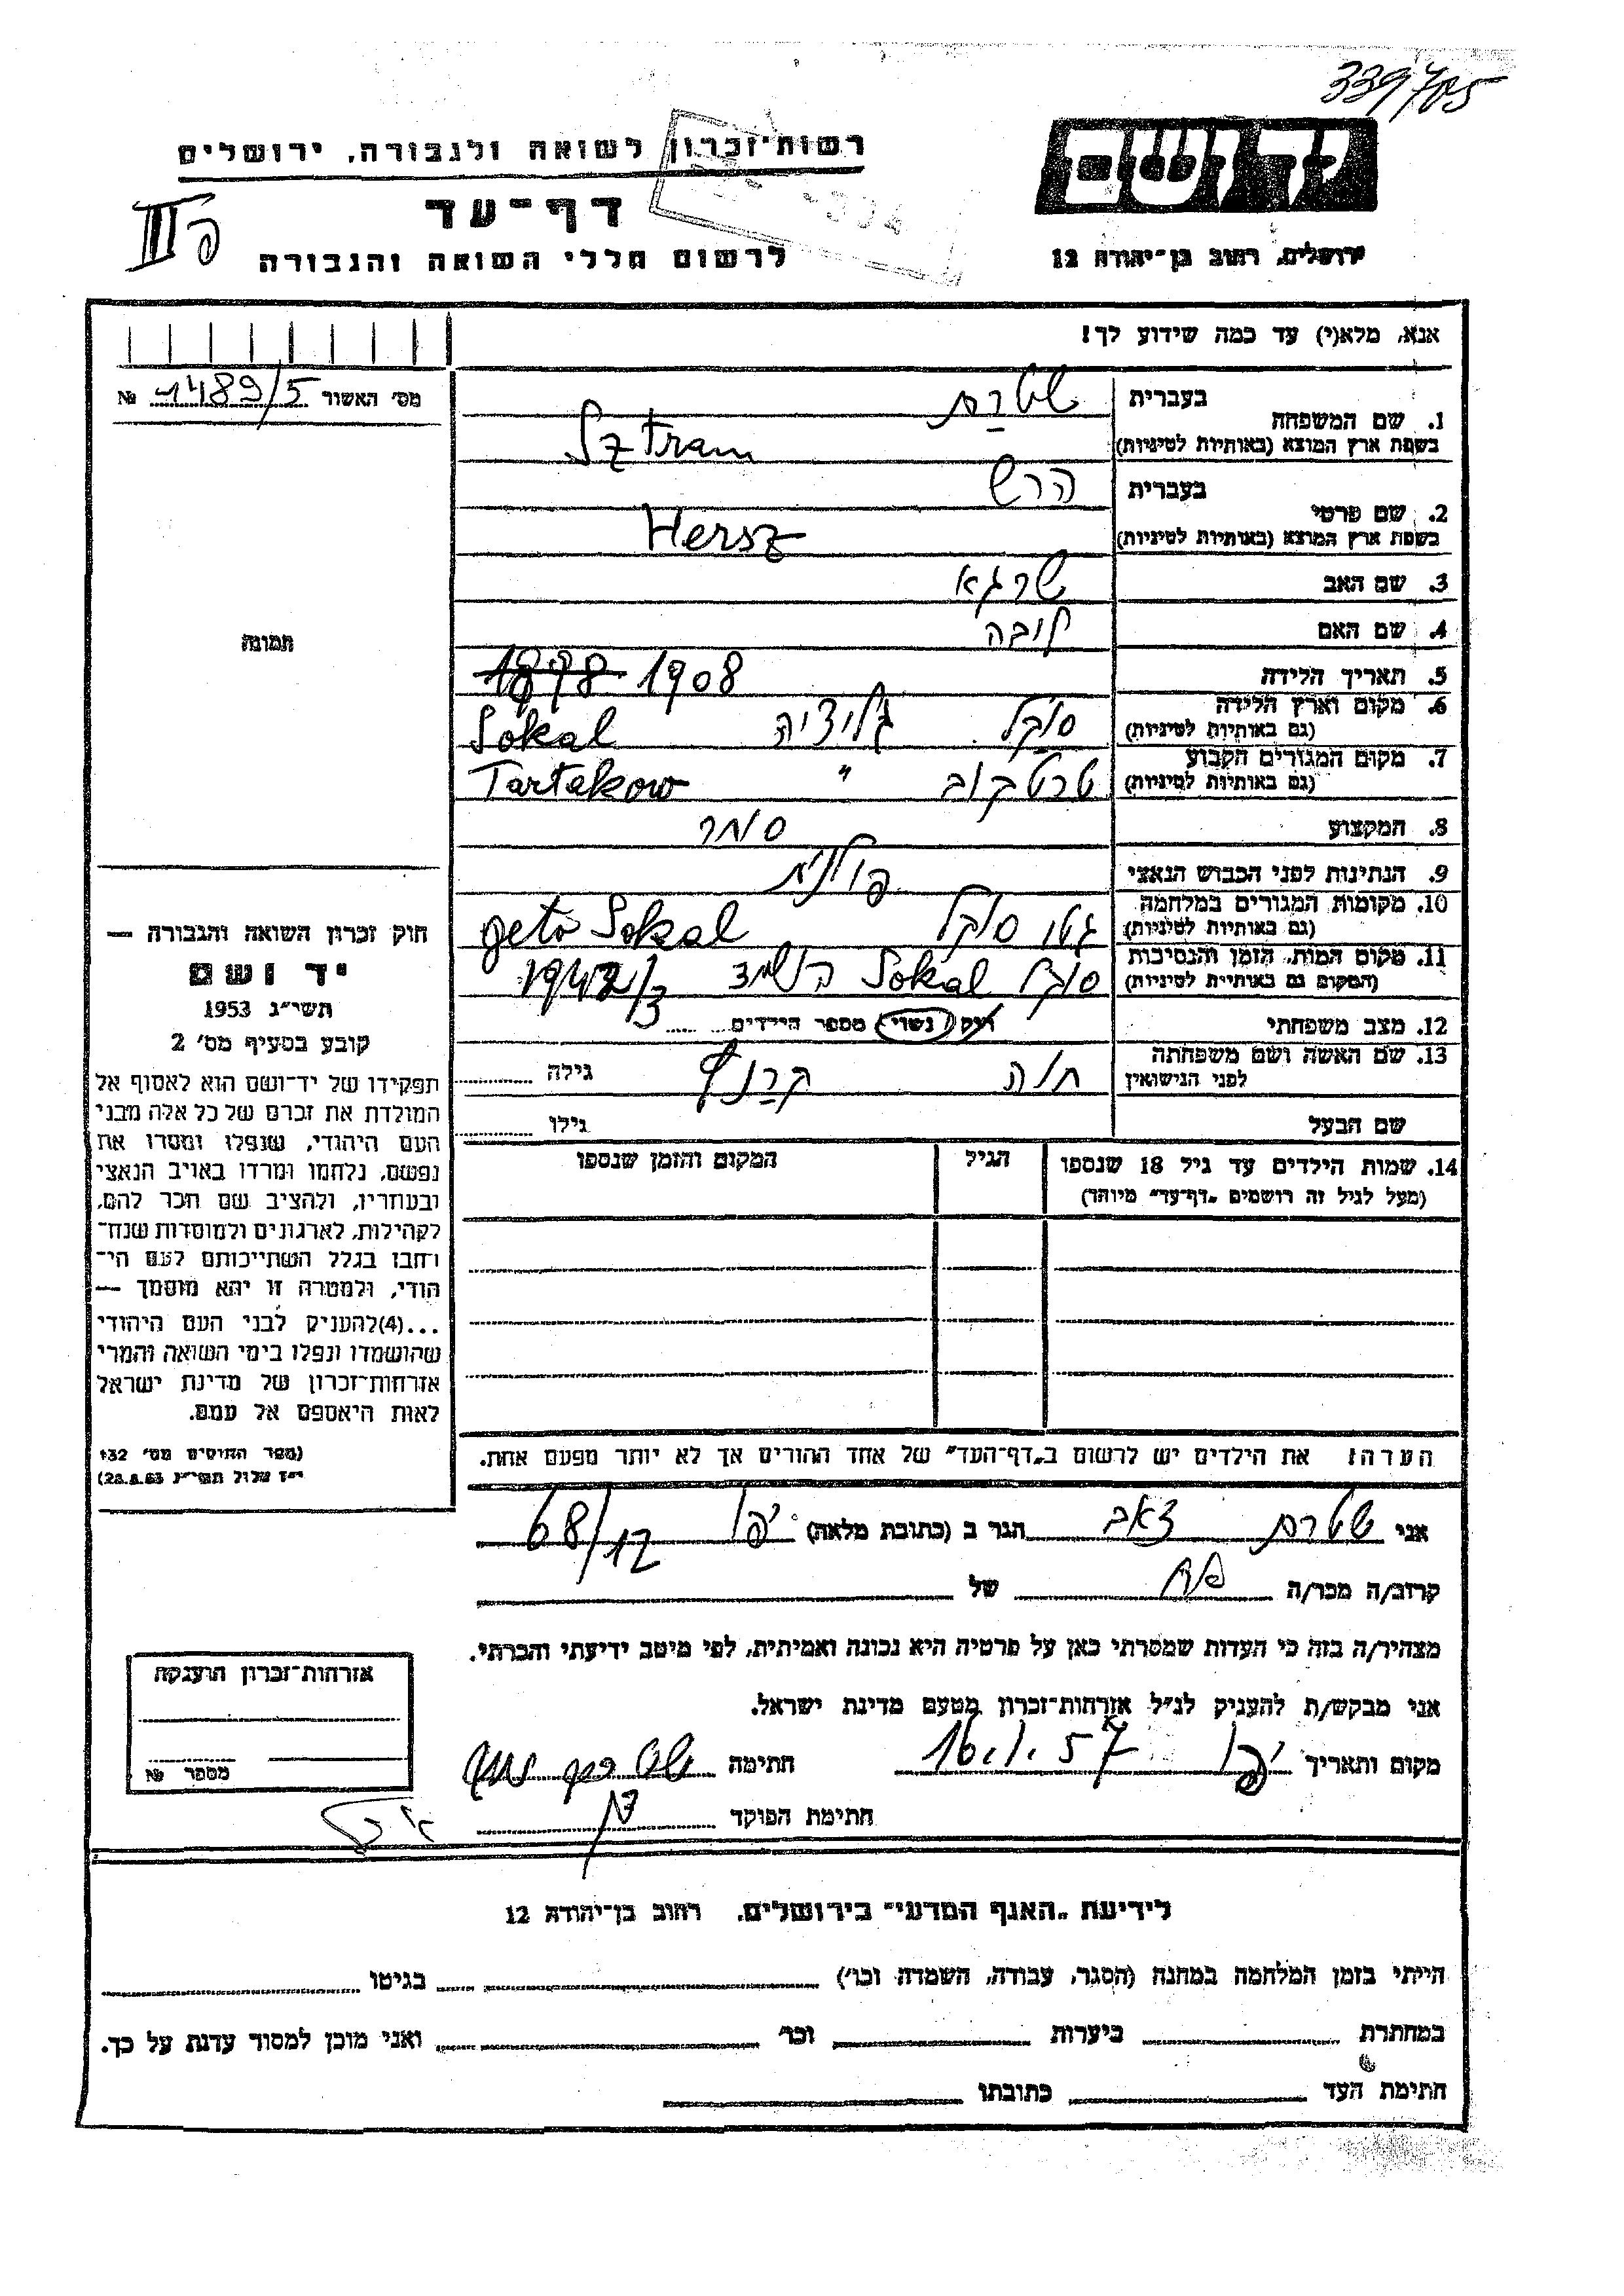 339705
יד ושם
רשות־זכרון לשואה ולגבורה, ירושלים
דף־עד
לרשום חללי השואה והגבורה
ירושלים, רחוב בן־יהודה 12
אנא, מלא(י) עד כמה שידוע לך!
מס׳ האשור 1489/5 №
תמונה
1. שם המשפחה בעברית שטרם
בשפת ארץ המוצא (באותיות לטיניות) Sztram
2. שם פרטי בעברית הרש
בשפת ארץ המוצא (באותיות לטיניות) Hersz
3. שם האב שרגא
4. שם האם לובה
5. תאריך הלידה 1878 1908
6. מקום וארץ הלידה סוקל גליציה Sokal
(גם באותיות לטיניות)
7. מקום המגורים הקבוע טרטקוב " Tartakow
(גם באותיות לטיניות)
8. המקצוע סוחר
9. הנתינות לפני הכבוש הנאצי פולנית
10. מקומות המגורים במלחמה גטו סוקל geto Sokal
(גם באותיות לטיניות)
11. מקום המות, הזמן והנסיבות סוקל Sokal 1942/3
(המקום גם באותיית לטיניות)
12. מצב משפחתי רוק / נשוי / מספר הילדים
13. שם האשה ושם משפחתה חוה גילה
לפני הנישואין
שם הבעל גילו
14. שמות הילדים עד גיל 18 שנספו הגיל המקום והזמן שנספו
(מעל לגיל זה רושמים „דף־עד״ מיוחד)
הערה: את הילדים יש לרשום ב„דף־העד״ של אחד ההורים אך לא יותר מפעם אחת.
חוק זכרון השואה והגבורה —
יד ושם
תשי״ג 1953
קובע בסעיף מס׳ 2
תפקידו של יד־ושם הוא לאסוף אל
המולדת את זכרם של כל אלה מבני
העם היהודי, שנפלו ומסרו את
נפשם, נלחמו ומרדו באויב הנאצי
ובעוזריו, ולהציב שם וזכר להם,
לקהילות, לארגונים ולמוסדות שנח־
רחבו בגלל השתייכותם לעם הי־
הודי, ולמטרה זו יהא מוסמך —
...(4)להעניק לבני העם היהודי
שהושמדו ונפלו בימי השואה והמרי
אזרחות־זכרון של מדינת ישראל
לאות היאספם אל עמם.
(ספר החוקים מס׳ 132
י״ז אלול תשי״ג 28.8.53)
אני שטרם זאב הגר ב (כתובת מלאה) יפו 68/17
קרוב/ה מכר/ה אח של
מצהיר/ה בזה כי העדות שמסרתי כאן על פרטיה היא נכונה ואמיתית, לפי מיטב ידיעתי והכרתי.
אני מבקש/ת להעניק לנ״ל אזרחות־זכרון מטעם מדינת ישראל.
מקום ותאריך יפו 16.1.57 חתימה
חתימת הפוקד
אזרחות־זכרון הוענקה
מספר №
לידיעת „האגף המדעי״ בירושלים, רחוב בן־יהודה 12
הייתי בזמן המלחמה במחנה (הסגר, עבודה, השמדה וכו׳) בגיטו
במחתרת ביערות וכו׳ ואני מוכן למסור עדות על כך.
חתימת העד כתובתו